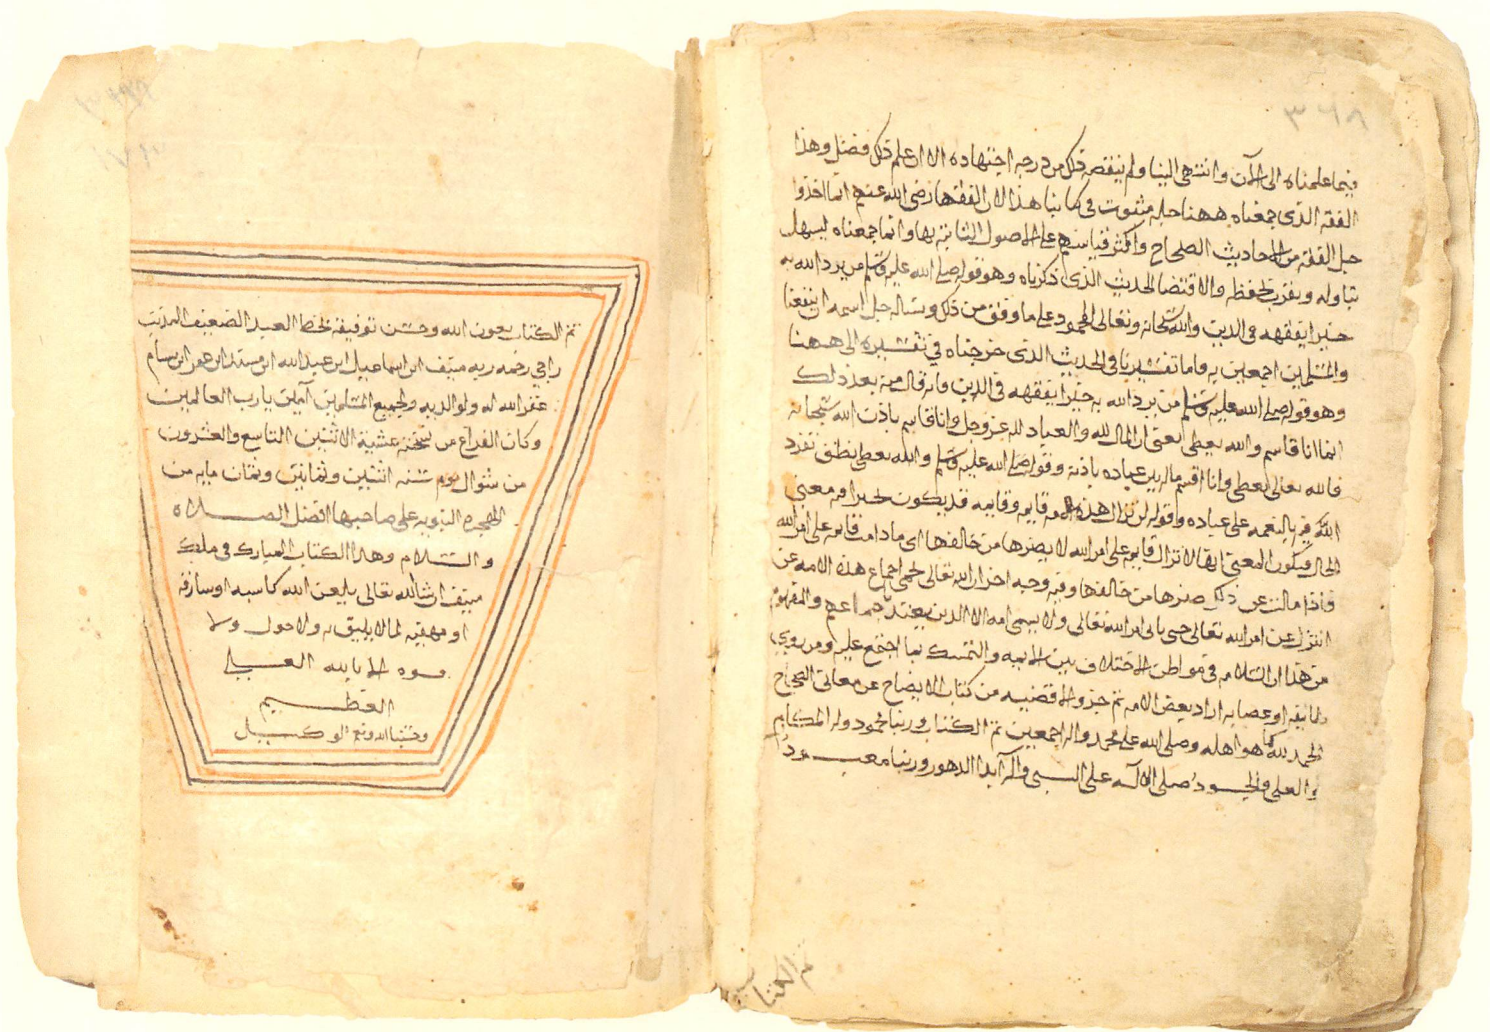 ٣٦٨
فيما علمناه الى الآن وانتهى الينا ولم ينقصه ذلك من درجه اجتهاده الا ان علم ذلك فضل وهذا
الفقه الذى جمعناه ههنا جله مثبوت فى كتابنا هذا لان الفقها رضى الله عنهم انما اخذوا
جل الفقه من الاحاديث الصحاح واكثر قياسهم على الاصول الثابته بها وانما جمعناه ليسهل
تناوله ويقرب حفظه والاقتضا الحديث الذى ذكرناه وهو قوله صلى الله عليه وسلم من يرد الله به
خيرا يفقهه فى الدين والله سبحانه وتعالى المحمود على ما وفق من ذلك ونساله جل اسمه ان ينفعنا
والمسلمين اجمعين به واما تفسير باقى الحديث الذى خرجناه فى تفسيره الى ههنا
وهو قوله صلى الله عليه وسلم من يرد الله به خيرا يفقهه فى الدين وانه قال فيه بعد ذلك
انما انا قاسم والله يعطى يعنى ان المال لله والعباد لله عز وجل وانا قاسم باذن الله سبحانه
فالله تعالى يعطى وانا اقسم ماله بين عباده باذنه وقوله صلى الله عليه وسلم والله يعطى
الله فيه بالنعمه على عباده وقوله لن تزال هذه الامه قايمه وقايمه قد يكون خبرا فيه معنى
الحال فيكون المعنى انها لا تزال قايمه على امر الله لا يضرها من خالفها اى ما دامت قايمه على امر الله
فاذا مالت عن ذلك ضرها من خالفها وفيه وجه اخر ان الله تعالى يحمى اجماع هذه الامه عن
ان تزل عن امر الله تعالى حتى ياتى امر الله تعالى ولا يسمى امه الا الذين يعتد بجماعهم والمفهوم
من هذا ان السلامه فى مواطن الاختلاف بين الايمه والتمسك بما اجتمع عليه ومن روى
طايفه او عصابه اراد بعض الامه تم جزو الاقضيه من كتاب الايضاح عن معانى الصحاح
الحمد لله كما هو اهله وصلى الله على محمد واله اجمعين تم الكتاب وربنا محمود وله المكارم
والعلى والجود صلى الاله على النبى واله ابدا الدهور وربنا معبود
تم الكتاب
تم الكتاب بعون الله وحسن توفيقه بخط العبد الضعيف المذنب
راجى رحمه ربه ابن اسماعيل ابن عبد الله ابن
غفر الله له ولوالديه ولجميع المسلمين آمين يا رب العالمين
وكان الفراغ من نسخته عشية الاثنين التاسع والعشرون
من شوال سنه اثنتين وثمانين وثمان مايه من
الهجره النبويه على صاحبها افضل الصلاه
والسلام وهذا الكتاب المبارك فى ملك
ان شا الله تعالى يلعن الله كاسبه او سارقه
او مهقيه لما لا يليق به ولا حول ولا
قوه الا بالله العلى
العظيم
وحسبنا الله ونعم الوكيل